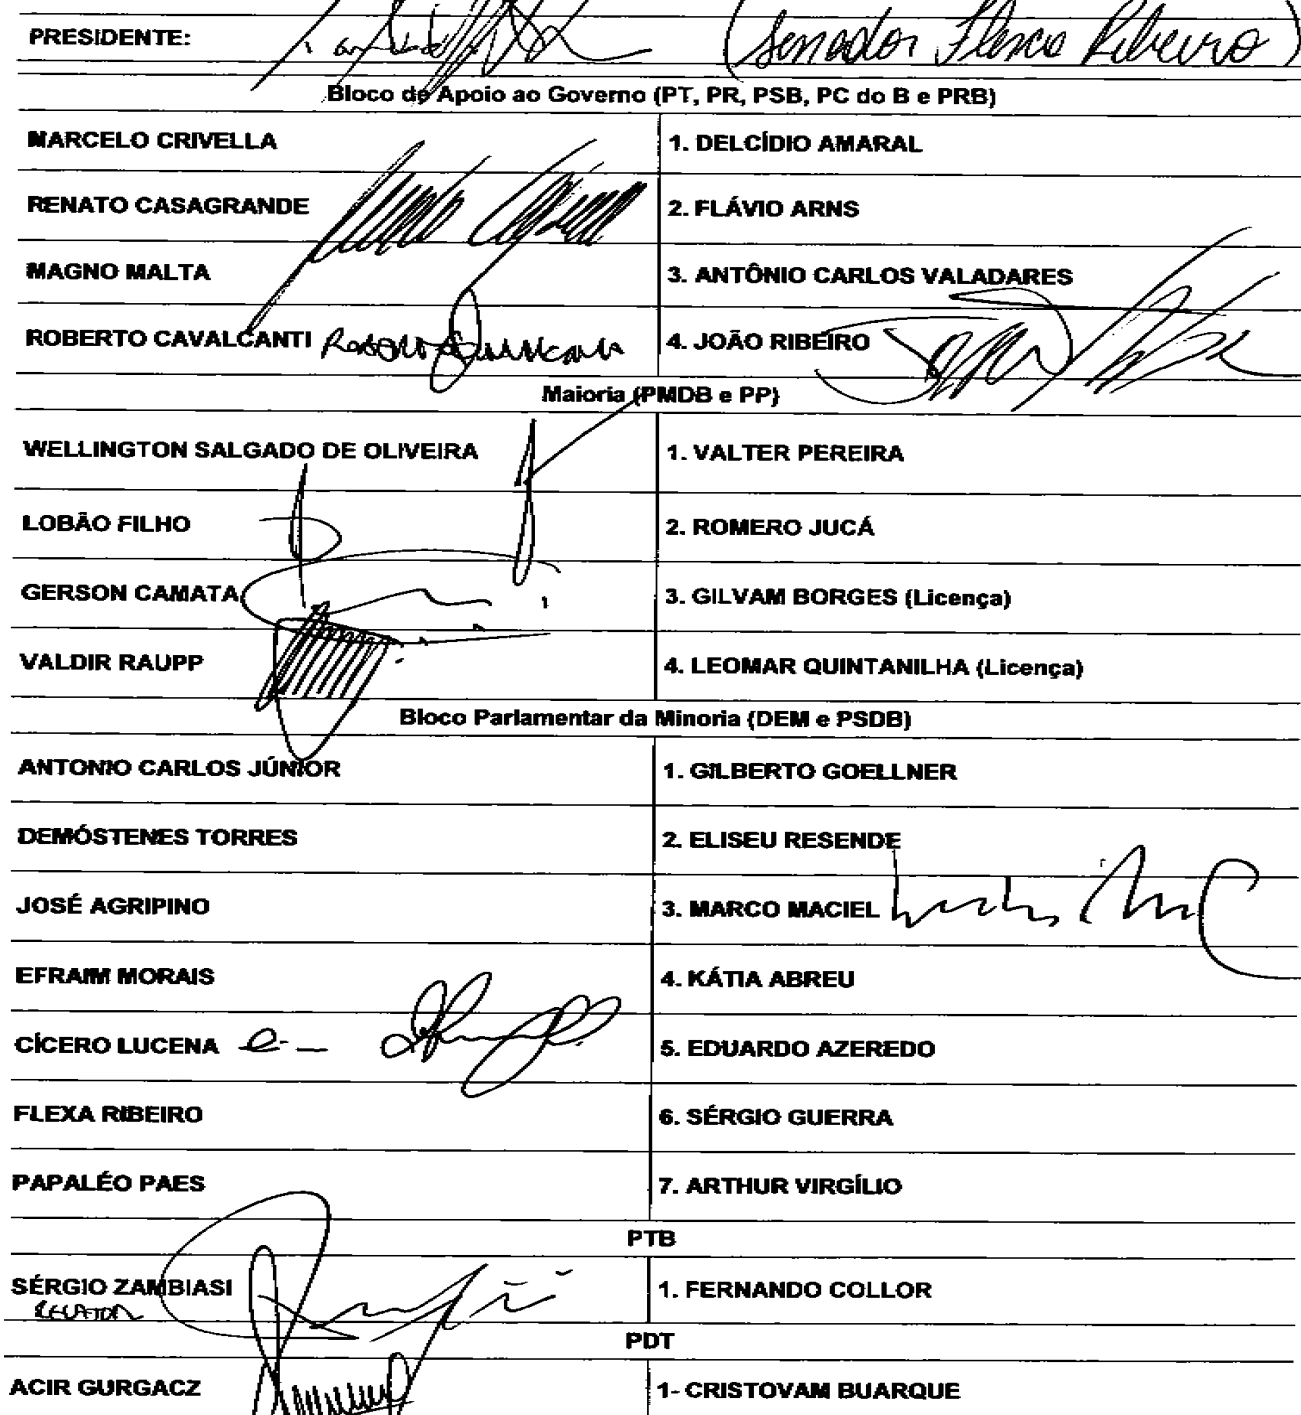 PRESIDENTE: (Senador Flexa Ribeiro)
Bloco de Apoio ao Governo (PT, PR, PSB, PC do B e PRB)
MARCELO CRIVELLA 1. DELCÍDIO AMARAL
RENATO CASAGRANDE 2. FLÁVIO ARNS
MAGNO MALTA 3. ANTÔNIO CARLOS VALADARES
ROBERTO CAVALCANTI 4. JOÃO RIBEIRO
Maioria (PMDB e PP)
WELLINGTON SALGADO DE OLIVEIRA 1. VALTER PEREIRA
LOBÃO FILHO 2. ROMERO JUCÁ
GERSON CAMATA 3. GILVAM BORGES (Licença)
VALDIR RAUPP 4. LEOMAR QUINTANILHA (Licença)
Bloco Parlamentar da Minoria (DEM e PSDB)
ANTONIO CARLOS JÚNIOR 1. GILBERTO GOELLNER
DEMÓSTENES TORRES 2. ELISEU RESENDE
JOSÉ AGRIPINO 3. MARCO MACIEL
EFRAIM MORAIS 4. KÁTIA ABREU
CÍCERO LUCENA 5. EDUARDO AZEREDO
FLEXA RIBEIRO 6. SÉRGIO GUERRA
PAPALÉO PAES 7. ARTHUR VIRGÍLIO
PTB
SÉRGIO ZAMBIASI 1. FERNANDO COLLOR
RELATOR
PDT
ACIR GURGACZ 1- CRISTOVAM BUARQUE